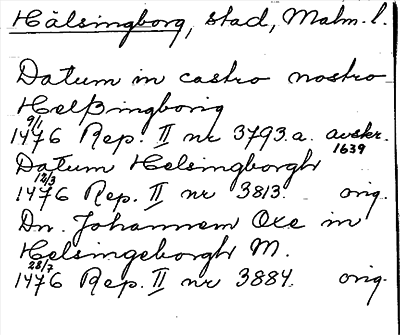 Hälsingborg, stad, Malm. l.
Datum in castro nostro
Helßingborig
9/1
1476 Rep. II nr 3793.a. avskr.
1639
Datum Helsingborgh
12/3
1476 Rep. II nr 3813. orig.
Dn. Johannem Oxe in
Helsingeborgh M.
28/7
1476 Rep. II nr 3884. orig.